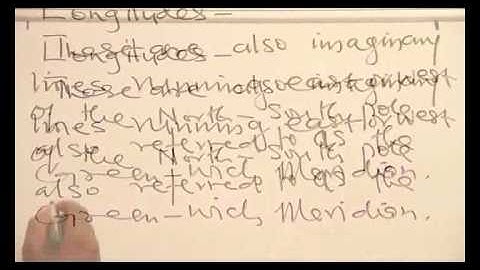 Longitudes -
These are also imaginary
lines running east or west
of the North - South Pole
also referred to as the
Green-wich Meridian.